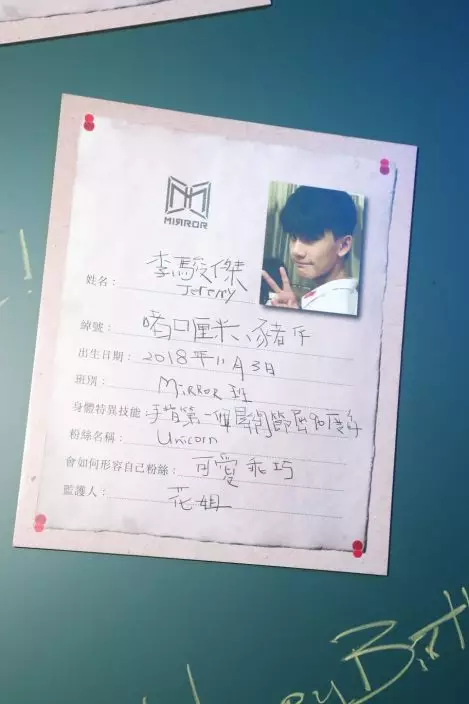 MIRROR
姓名：李駿傑
Jeremy
綽號：啫口厘米、豬仔
出生日期：2018年11月3日
班別：MIRROR班
身體特異技能：手指第一個關節屈90度
粉絲名稱：Unicorn
會如何形容自己粉絲：可愛乖巧
監護人：花姐
!